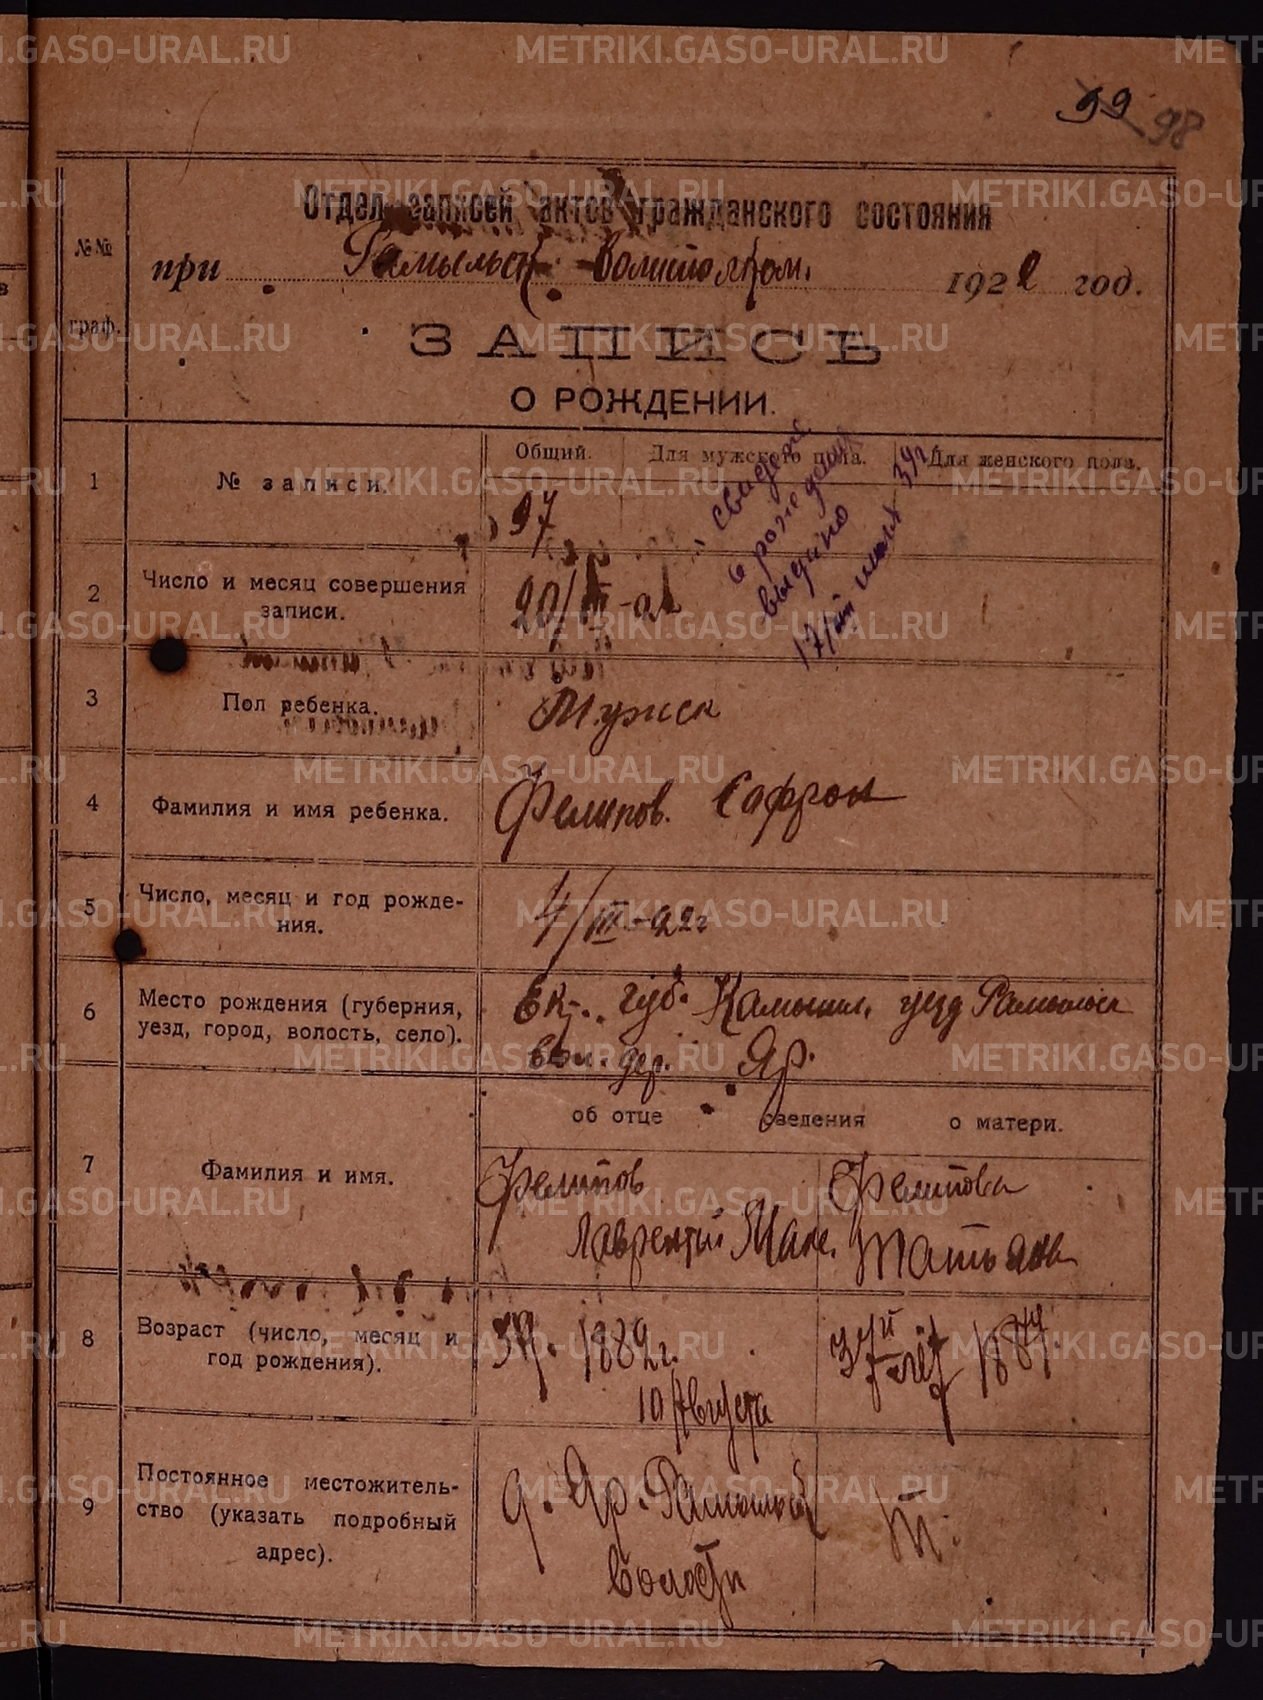 99 98
Отдел записей актов гражданского состояния
при Рамыльск. волисполком. 1922 год.
№№ граф.
ЗАПИСЬ
О РОЖДЕНИИ.
Общий. Для мужского пола. Для женского пола.
1 № записи. 97
свидет
о рождении
выдано
17/III 39г
2 Число и месяц совершения
записи. 20/III-22
3 Пол ребенка. Мужск
4 Фамилия и имя ребенка. Фелипов. Софрон
5 Число, месяц и год рожде-
ния. 4/III-22г
6 Место рождения (губерния,
уезд, город, волость, село). Ек. губ. Камышл. уезд Рамыльск
вол. дер. Яр.
об отце сведения о матери.
7 Фамилия и имя. Фелипов Фелипова
Лаврентий Макс. Татьяна
8 Возраст (число, месяц и
год рождения). 39. 1882г. 37 лет
10 Августа
9 Постоянное местожитель-
ство (указать подробный
адрес). д. Яр. Рамыльск
волости
METRIKI.GASO-URAL.RU